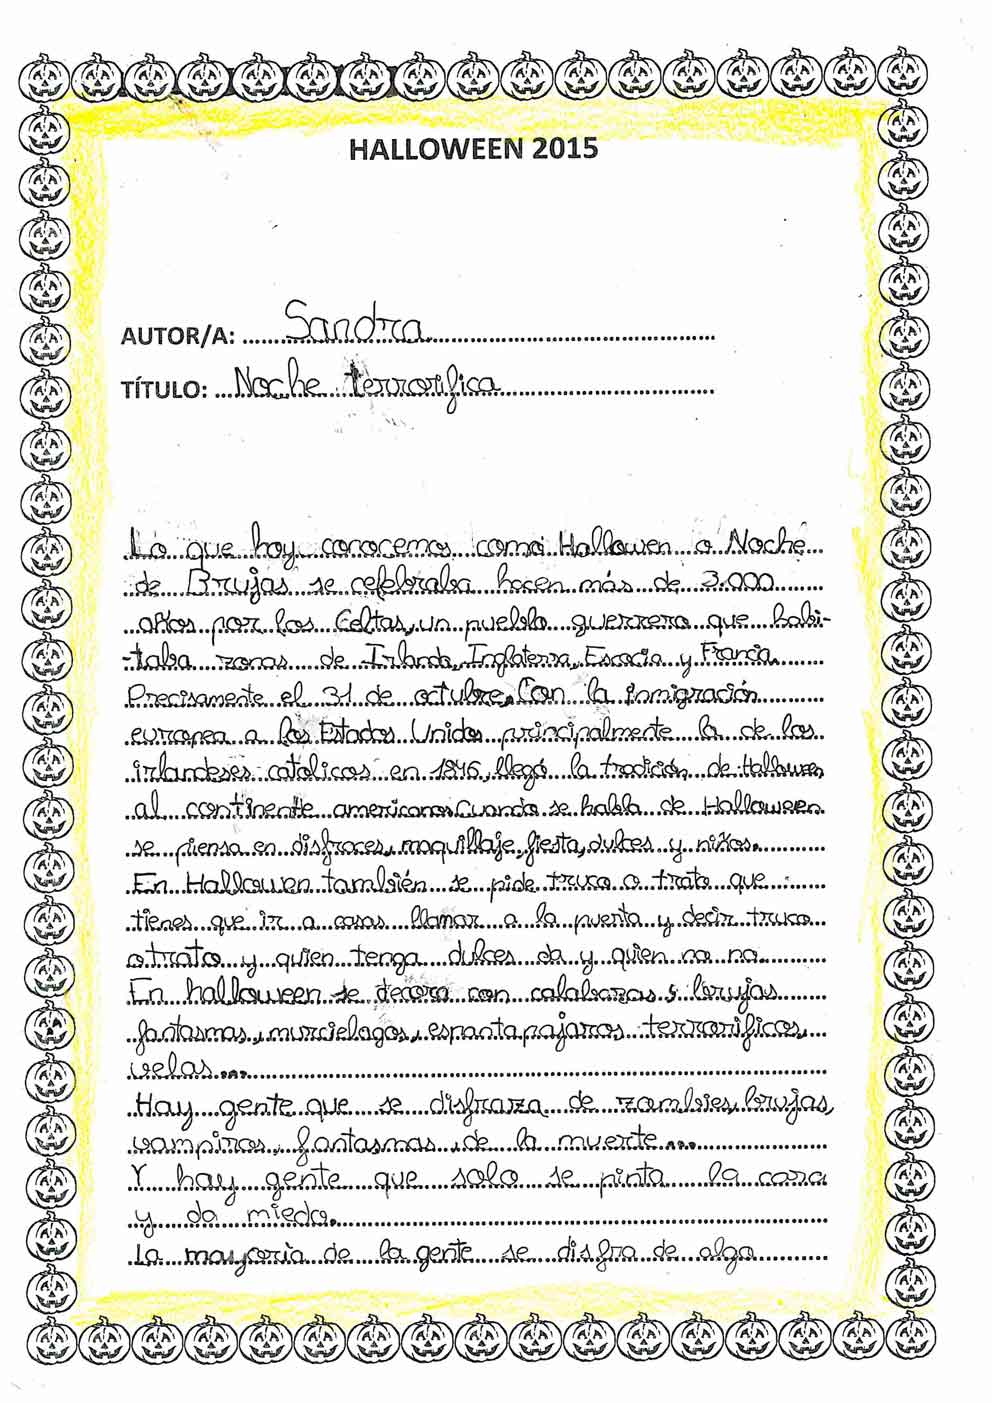 HALLOWEEN 2015
AUTOR/A: Sandra
TÍTULO: Noche terrorifica
Lo que hoy conocemos como Hallowen o Noche
de Brujas se celebraba hacen más de 3.000
años por los Celtas, un pueblo guerrero que habi-
taba zonas de Irlanda, Inglaterra, Escocia y Francia.
Precisamente el 31 de octubre, Con la inmigración
europea a los Estados Unidos principalmente la de los
irlandeses catolicos en 1846, llegó la tradición de Hallowen
al continente americano. Cuando se habla de Halloween
se piensa en disfraces, maquillaje, fiesta, dulces y niños.
En Hallowen también se pide truco o trato que
tienes que ir a casas llamar a la puerta y decir truco
o trato y quien tenga dulces da y quien no no.
En halloween se decora con calabazas, brujas
fantasmas, murcielagos, espantapajaros terrorificos,
velas...
Hay gente que se disfraza de zombies, brujas,
vampiros, fantasmas, de la muerte...
Y hay gente que solo se pinta la cara
y da miedo.
La mayoria de la gente se disfra de algo